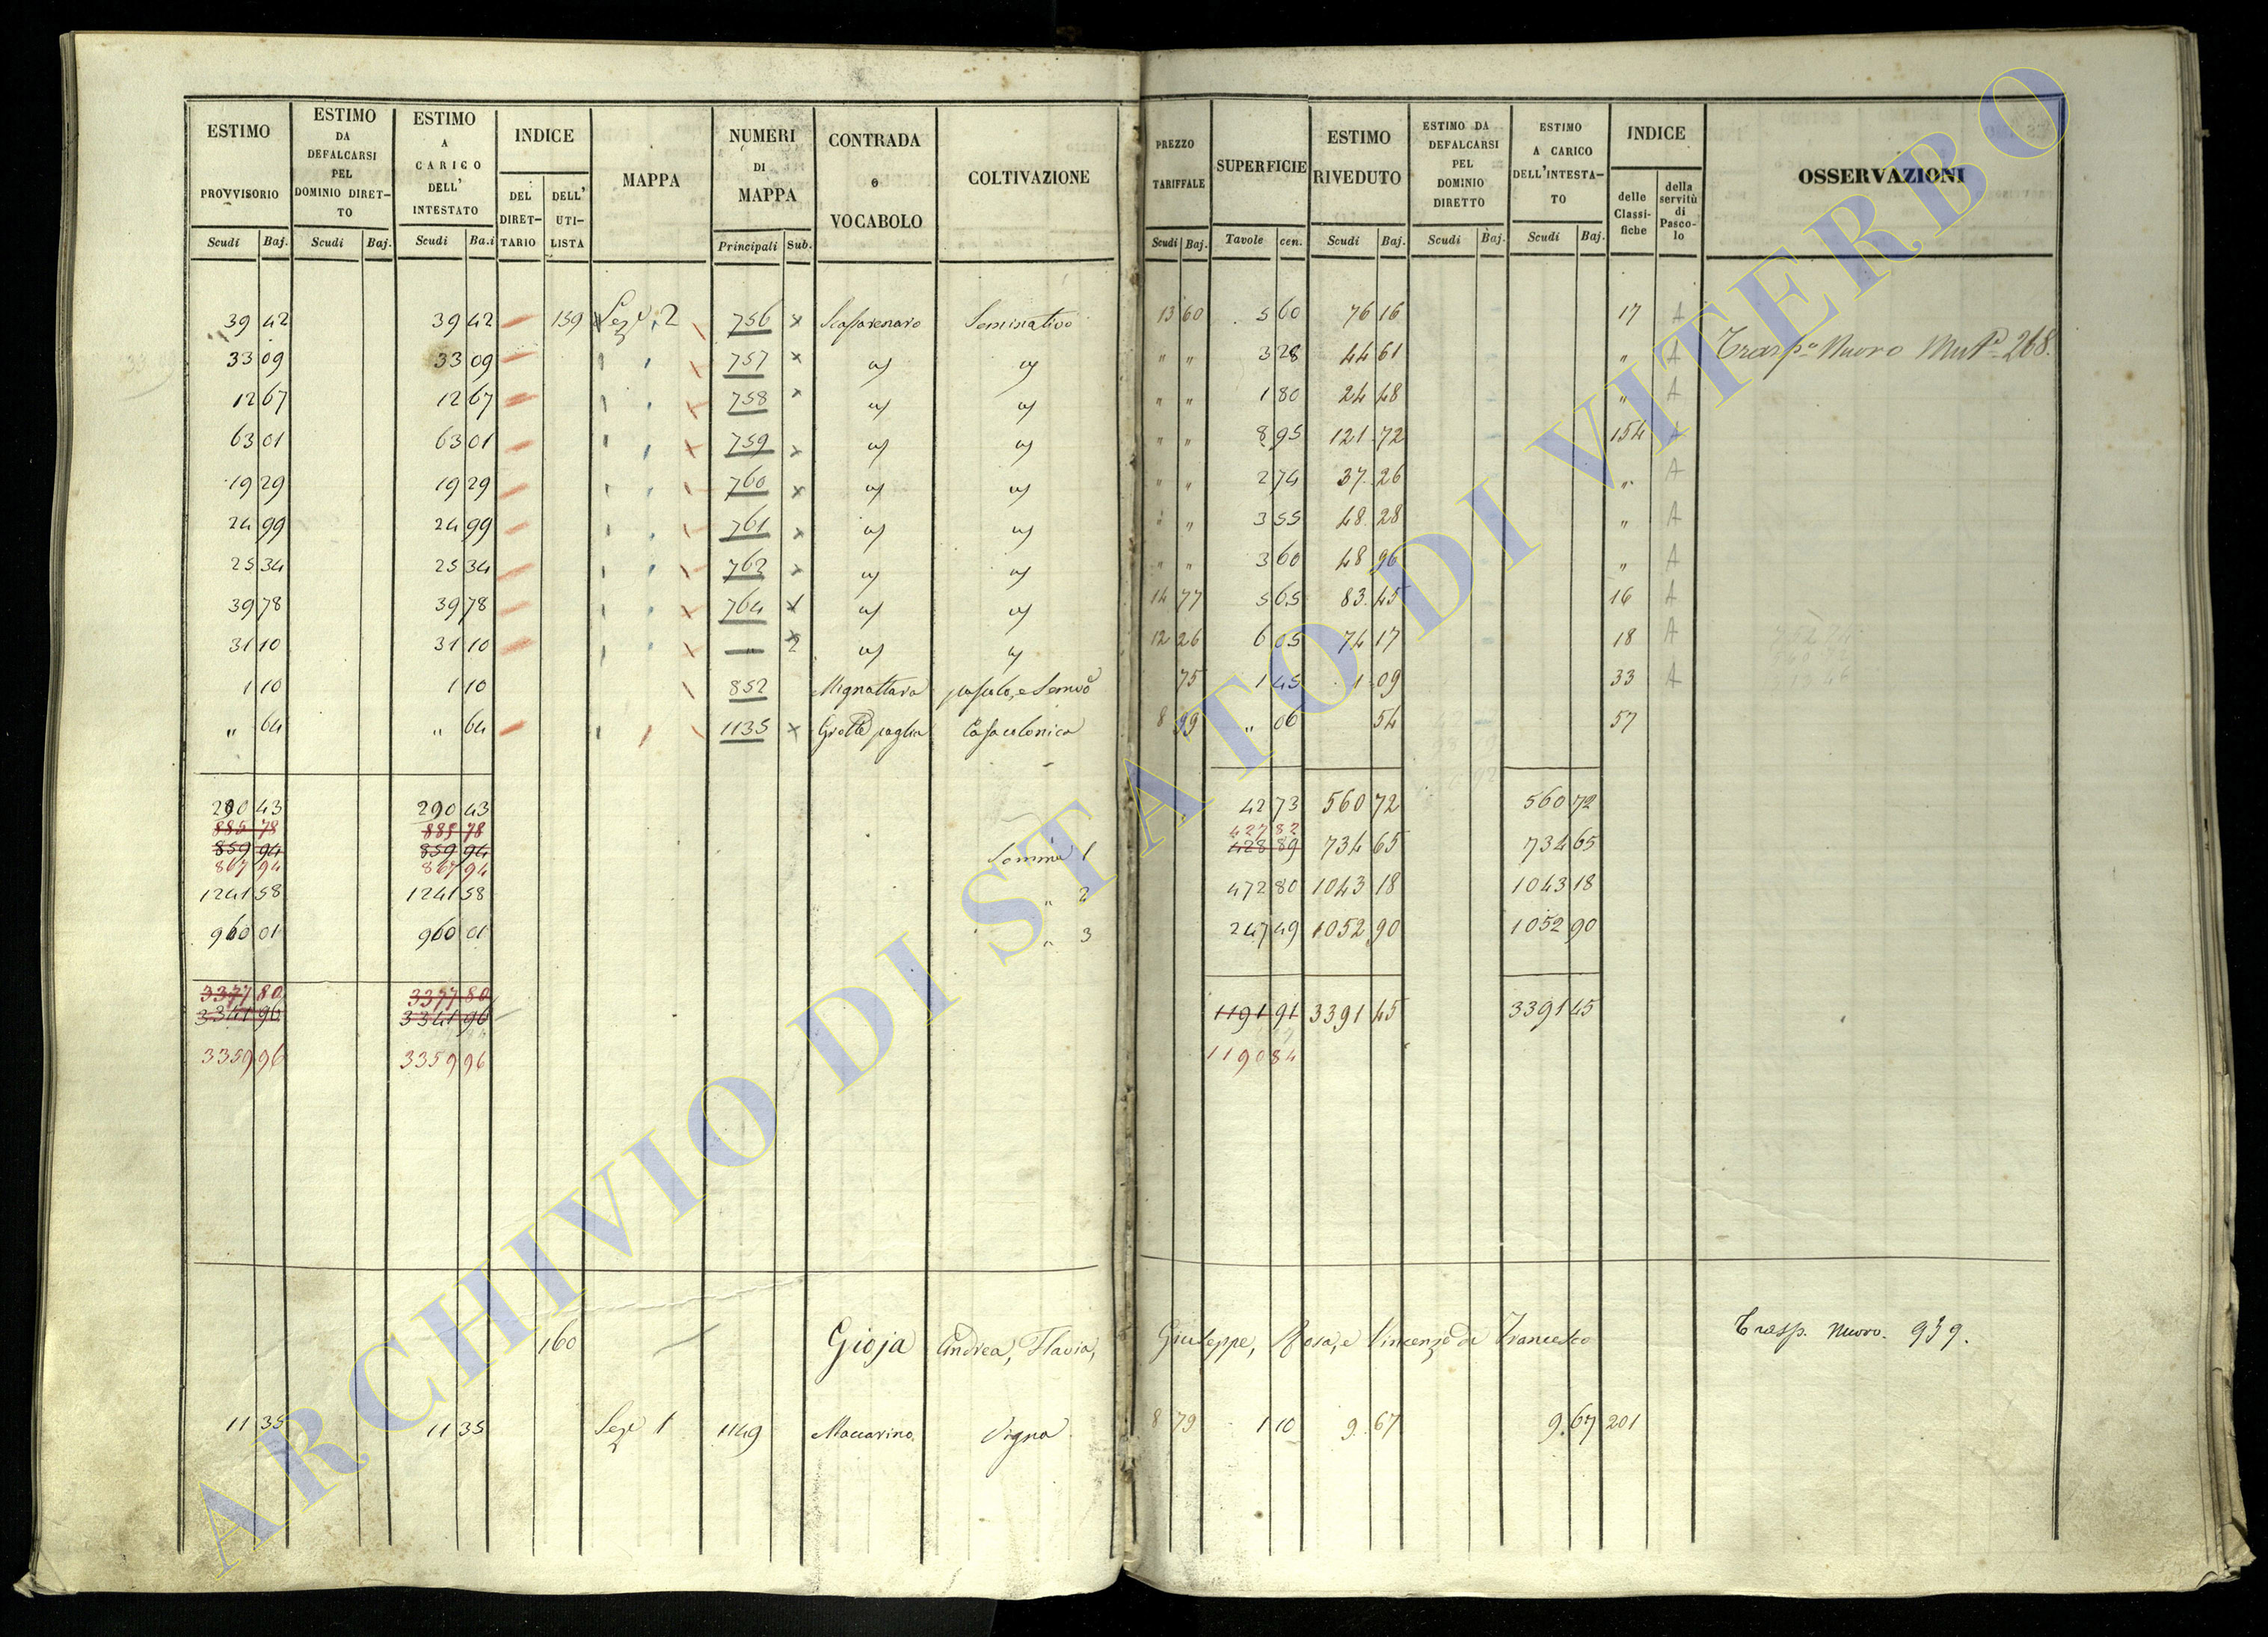 ESTIMO PROVVISORIO | ESTIMO DA DEFALCARSI PEL DOMINIO DIRETTO | ESTIMO A CARICO DELL' INTESTATO | INDICE | MAPPA | NUMERI DI MAPPA | CONTRADA o VOCABOLO | COLTIVAZIONE | PREZZO TARIFFALE | SUPERFICIE | ESTIMO RIVEDUTO | ESTIMO DA DEFALCARSI PEL DOMINIO DIRETTO | ESTIMO A CARICO DELL'INTESTATO | INDICE | OSSERVAZIONI
DEL DIRETTARIO | DELL' UTILISTA | delle Classifiche | della servitù di Pascolo
Scudi | Baj. | Scudi | Baj. | Scudi | Ba.i | Principali | Sub. | Scudi | Baj. | Tavole | cen. | Scudi | Baj. | Scudi | Baj. | Scudi | Baj.
39 42 | 39 42 | 159 | Sez.e 2 | 756 | x | Seminativo | 13 60 | 5 60 | 76 16 | 17 | A
33 09 | 33 09 | 757 | x | 〃 〃 | 3 28 | 44 61 | 〃 | A | Trasp.o Nuovo 268.
12 67 | 12 67 | 758 | x | 〃 〃 | 1 80 | 24 48 | 〃 | A
63 01 | 63 01 | 759 | x | 〃 〃 | 8 95 | 121 72 | 154 | A
19 29 | 19 29 | 760 | x | 〃 〃 | 2 74 | 37 26 | 〃 | A
24 99 | 24 99 | 761 | x | 〃 〃 | 3 55 | 48 28 | 〃 | A
25 34 | 25 34 | 762 | x | 〃 〃 | 3 60 | 48 96 | 〃 | A
39 78 | 39 78 | 764 | 1 | 14 77 | 5 65 | 83 45 | 16 | A
31 10 | 31 10 | 〃 | 2 | 12 26 | 6 05 | 74 17 | 18 | A
1 10 | 1 10 | 852 | Mignattara | 75 | 1 45 | 1 09 | 33 | A
〃 64 | 〃 64 | 1135 | x | Casa colonica | 8 99 | 〃 06 | 54 | 57
290 43 | 290 43 | 42 73 | 560 72 | 560 72
885 78 | 885 78 | 427 82
859 94 | 859 94 | Somma 1 | 428 89 | 734 65 | 734 65
867 94 | 867 94
1241 58 | 1241 58 | 〃 2 | 472 80 | 1043 18 | 1043 18
960 01 | 960 01 | 〃 3 | 247 49 | 1052 90 | 1052 90
3377 80 | 3377 80
3341 96 | 3341 96 | 1191 91 | 3391 45 | 3391 45
3359 96 | 3359 96 | 1190 84
160 | Gioja Andrea, Flavia, Giuseppe, Rosa, e Vincenzo di Francesco | Trasp. Nuovo. 939.
11 35 | 11 35 | Sez.e 1 | 1149 | Maccarino | Vigna | 8 79 | 1 10 | 9 67 | 9 67 | 201
ARCHIVIO DI STATO DI VITERBO